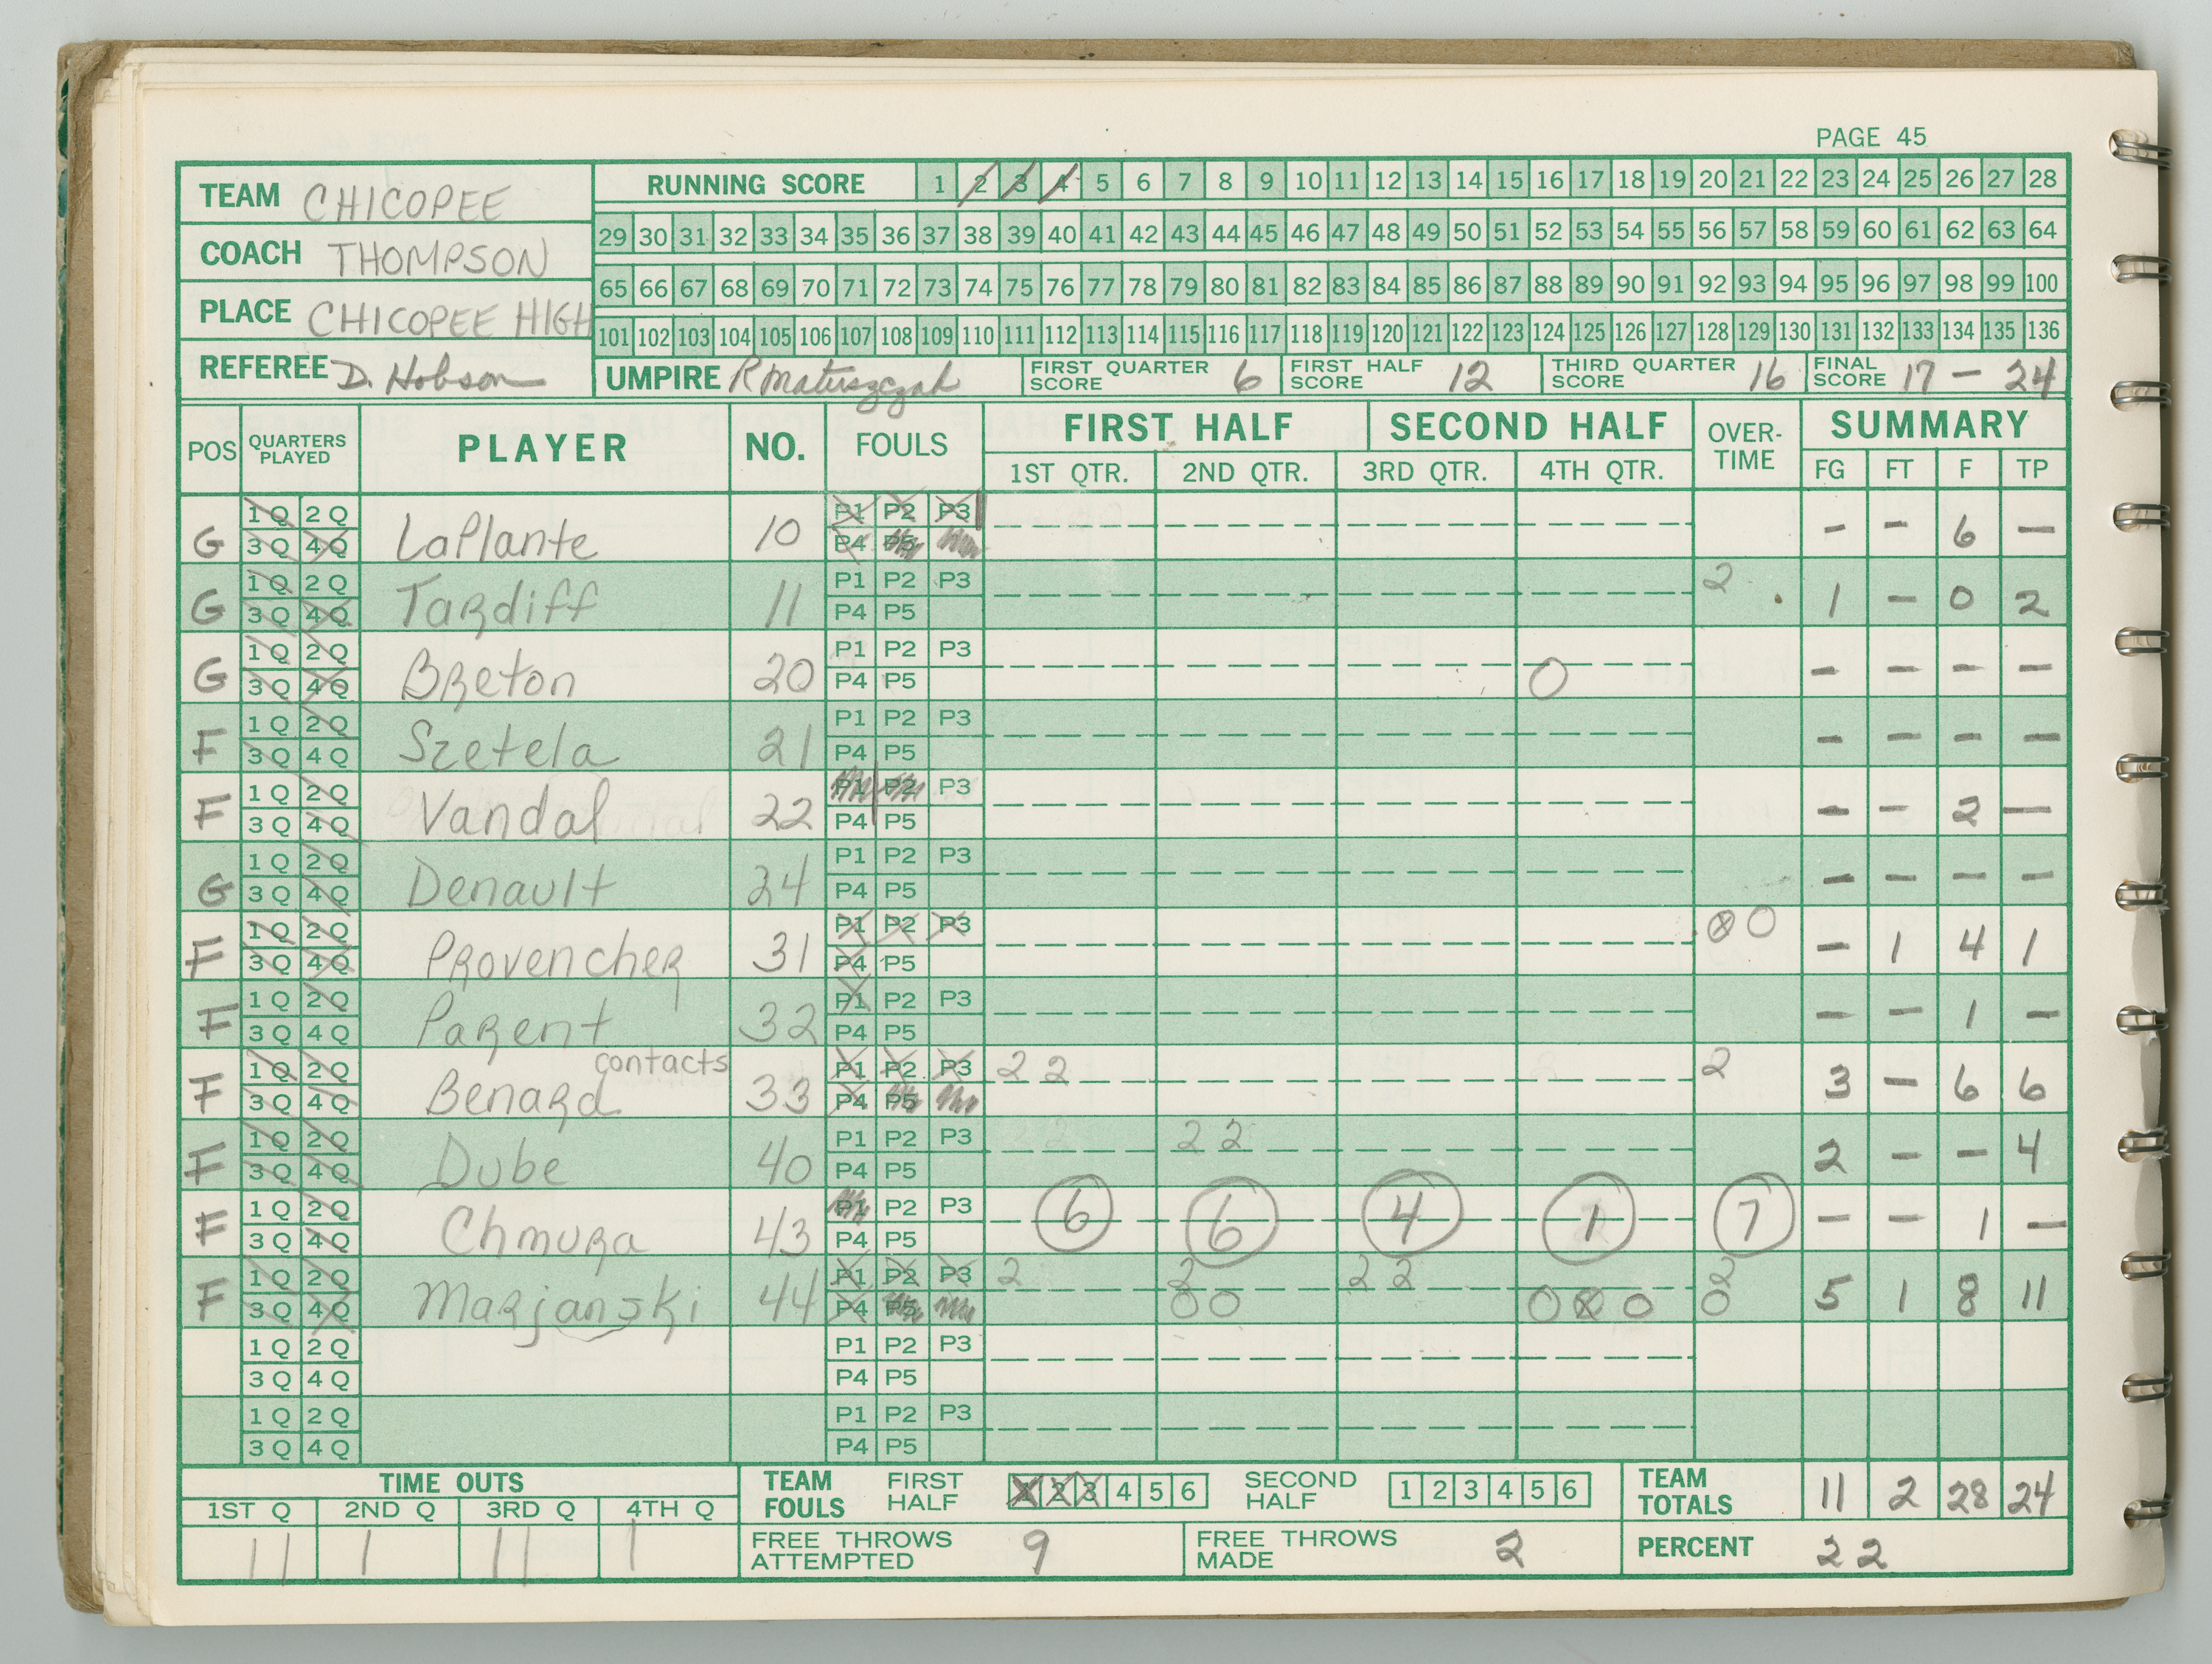 PAGE 45
TEAM CHICOPEE
COACH THOMPSON
PLACE CHICOPEE HIGH
REFEREE D. Hobson
RUNNING SCORE 1 2 3 4 5 6 7 8 9 10 11 12 13 14 15 16 17 18 19 20 21 22 23 24 25 26 27 28
29 30 31 32 33 34 35 36 37 38 39 40 41 42 43 44 45 46 47 48 49 50 51 52 53 54 55 56 57 58 59 60 61 62 63 64
65 66 67 68 69 70 71 72 73 74 75 76 77 78 79 80 81 82 83 84 85 86 87 88 89 90 91 92 93 94 95 96 97 98 99 100
101 102 103 104 105 106 107 108 109 110 111 112 113 114 115 116 117 118 119 120 121 122 123 124 125 126 127 128 129 130 131 132 133 134 135 136
UMPIRE R Matuszczak FIRST QUARTER SCORE 6 FIRST HALF SCORE 12 THIRD QUARTER SCORE 16 FINAL SCORE 17 - 24
POS QUARTERS PLAYED PLAYER NO. FOULS FIRST HALF SECOND HALF OVER-TIME SUMMARY
1ST QTR. 2ND QTR. 3RD QTR. 4TH QTR. FG FT F TP
G 1Q 2Q 3Q 4Q LaPlante 10 P1 P2 P3 P4 P5 - - 6 -
G 1Q 2Q 3Q 4Q Tardiff 11 P1 P2 P3 P4 P5 2 1 - 0 2
G 1Q 2Q 3Q 4Q Breton 20 P1 P2 P3 P4 P5 0 - - - -
F 1Q 2Q 3Q 4Q Szetela 21 P1 P2 P3 P4 P5 - - - -
F 1Q 2Q 3Q 4Q Vandal 22 P1 P2 P3 P4 P5 - - 2 -
G 1Q 2Q 3Q 4Q Denault 24 P1 P2 P3 P4 P5 - - - -
F 1Q 2Q 3Q 4Q Provencher 31 P1 P2 P3 P4 P5 0 0 - 1 4 1
F 1Q 2Q 3Q 4Q Parent 32 P1 P2 P3 P4 P5 - - 1 -
F 1Q 2Q 3Q 4Q Benard contacts 33 P1 P2 P3 P4 P5 2 2 2 3 - 6 6
F 1Q 2Q 3Q 4Q Dube 40 P1 P2 P3 P4 P5 2 2 2 - - 4
F 1Q 2Q 3Q 4Q Chmura 43 P1 P2 P3 P4 P5 6 6 4 1 7 - - 1 -
F 1Q 2Q 3Q 4Q Marjanski 44 P1 P2 P3 P4 P5 2 2 0 0 2 2 0 0 0 2 0 5 1 8 11
1Q 2Q 3Q 4Q P1 P2 P3 P4 P5
1Q 2Q 3Q 4Q P1 P2 P3 P4 P5
TIME OUTS TEAM FOULS FIRST HALF 1 2 3 4 5 6 SECOND HALF 1 2 3 4 5 6 TEAM TOTALS 11 2 28 24
1ST Q 2ND Q 3RD Q 4TH Q
11 1 11 1 FREE THROWS ATTEMPTED 9 FREE THROWS MADE 2 PERCENT 22